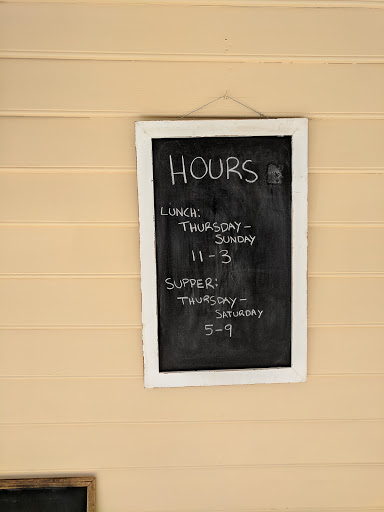 HOURS
LUNCH:
THURSDAY-
SUNDAY
11-3
SUPPER:
THURSDAY-
SATURDAY
5-9